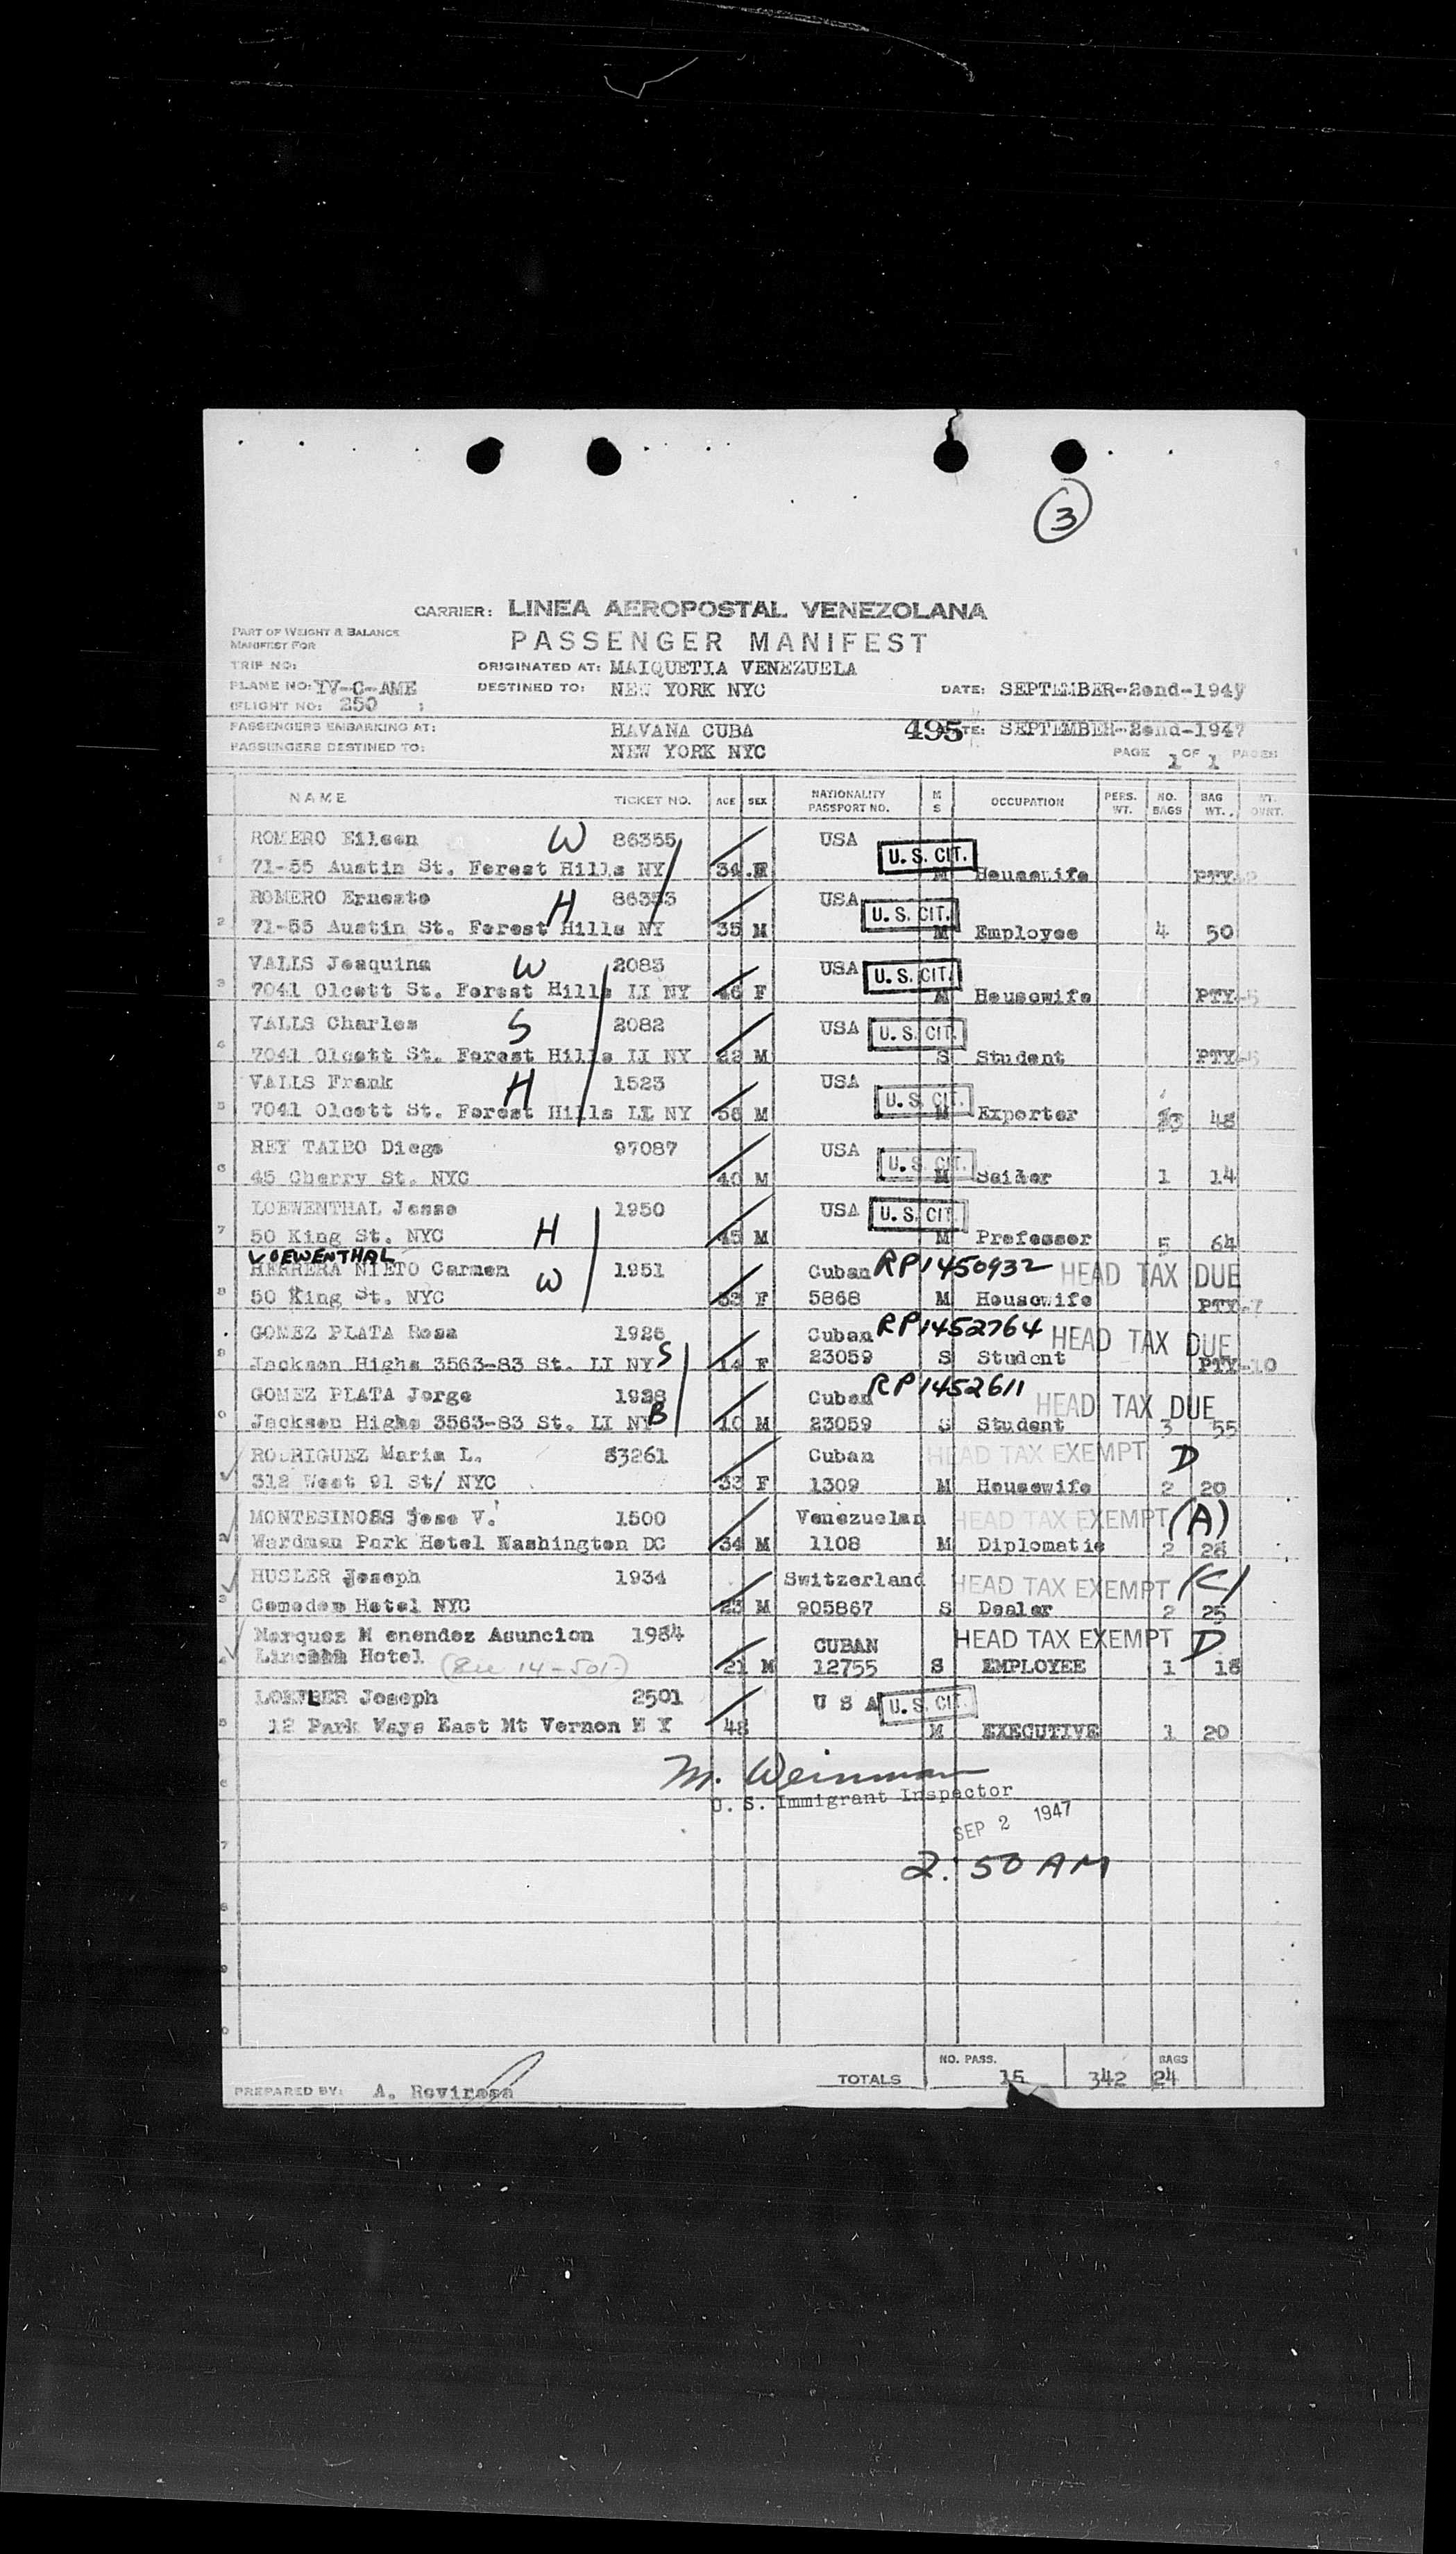 3
CARRIER: LINEA AEROPOSTAL VENEZOLANA
PART OF WEIGHT & BALANCE
MANIFEST FOR
PASSENGER MANIFEST
TRIP NO:
ORIGINATED AT: MAIQUETIA VENEZUELA
PLANE NO: YV-C-AME
DESTINED TO: NEW YORK NYC
DATE: SEPTEMBER-2end-1947
(FLIGHT NO: 250 )
PASSENGERS EMBARKING AT: HAVANA CUBA 495 TE: SEPTEMBER-2end-1947
PASSENGERS DESTINED TO: NEW YORK NYC PAGE 1 OF 1 PAGES
NAME TICKET NO. AGE SEX NATIONALITY PASSPORT NO. M S OCCUPATION PERS. WT. NO. BAGS BAG WT. WT. OVRT.
ROMERO Eileen W 86355 USA U. S. CIT.
1 71-55 Austin St. Forest Hills NY 34 F M Housewife PTY-2
ROMERO Ernesto H 86353 USA U. S. CIT.
2 71-55 Austin St. Forest Hills NY 35 M M Employee 4 50
VALLS Joaquina W 2083 USA U. S. CIT.
3 7041 Olcott St. Forest Hills LI NY 46 F M Housewife PTY-5
VALLS Charles S 2082 USA U. S. CIT.
4 7041 Olcott St. Forest Hills LI NY 22 M S Student PTY-5
VALLS Frank H 1523 USA U. S. CIT.
5 7041 Olcott St. Forest Hills LI NY 58 M M Exporter 3 48
REY TAIBO Diego 97087 USA U. S. CIT.
6 45 Cherry St. NYC 40 M M 1 14
LOEWENTHAL Jesse 1950 USA U. S. CIT.
7 50 King St. NYC H 45 M M Professor 5 64
LOEWENTHAL
HERRERA NIETO Carmen W 1951 Cuban RP1450932 HEAD TAX DUE
8 50 King St. NYC 33 F 5868 M Housewife PTY-7
GOMEZ PLATA Rosa 1926 Cuban RP1452764 HEAD TAX DUE
9 Jackson Highs 3563-83 St. LI NY S 14 F 23059 S Student PTY-10
GOMEZ PLATA Jorge 1928 Cuban RP1452611 HEAD TAX DUE
0 Jackson Highs 3563-83 St. LI NY B 10 M 23059 S Student 3 55
RODRIGUEZ Maria L. 83261 Cuban HEAD TAX EXEMPT D
312 West 91 St/ NYC 33 F 1309 M Housewife 2 20
MONTESINOSS Jose V. 1500 Venezuelan HEAD TAX EXEMPT (A)
2 Wardman Park Hotel Washington DC 34 M 1108 M Diplomatic 2 28
HUSLER Joseph 1934 Switzerland HEAD TAX EXEMPT (C)
3 Comodem Hotel NYC 23 M 905867 S Dealer 2 25
Marquez M enendez Asuncion 1984 CUBAN HEAD TAX EXEMPT D
4 Hotel 21 M 12755 S EMPLOYEE 1 18
LOEFLER Joseph 2501 U S A U. S. CIT.
5 12 Park Ways East Mt Vernon N Y 48 M EXECUTIVE 1 20
M. Weinman
U. S. Immigrant Inspector
6
SEP 2 1947
7
2:50 AM
8
9
0
NO. PASS. BAGS
TOTALS 15 342 24
PREPARED BY: A. Rovirosa